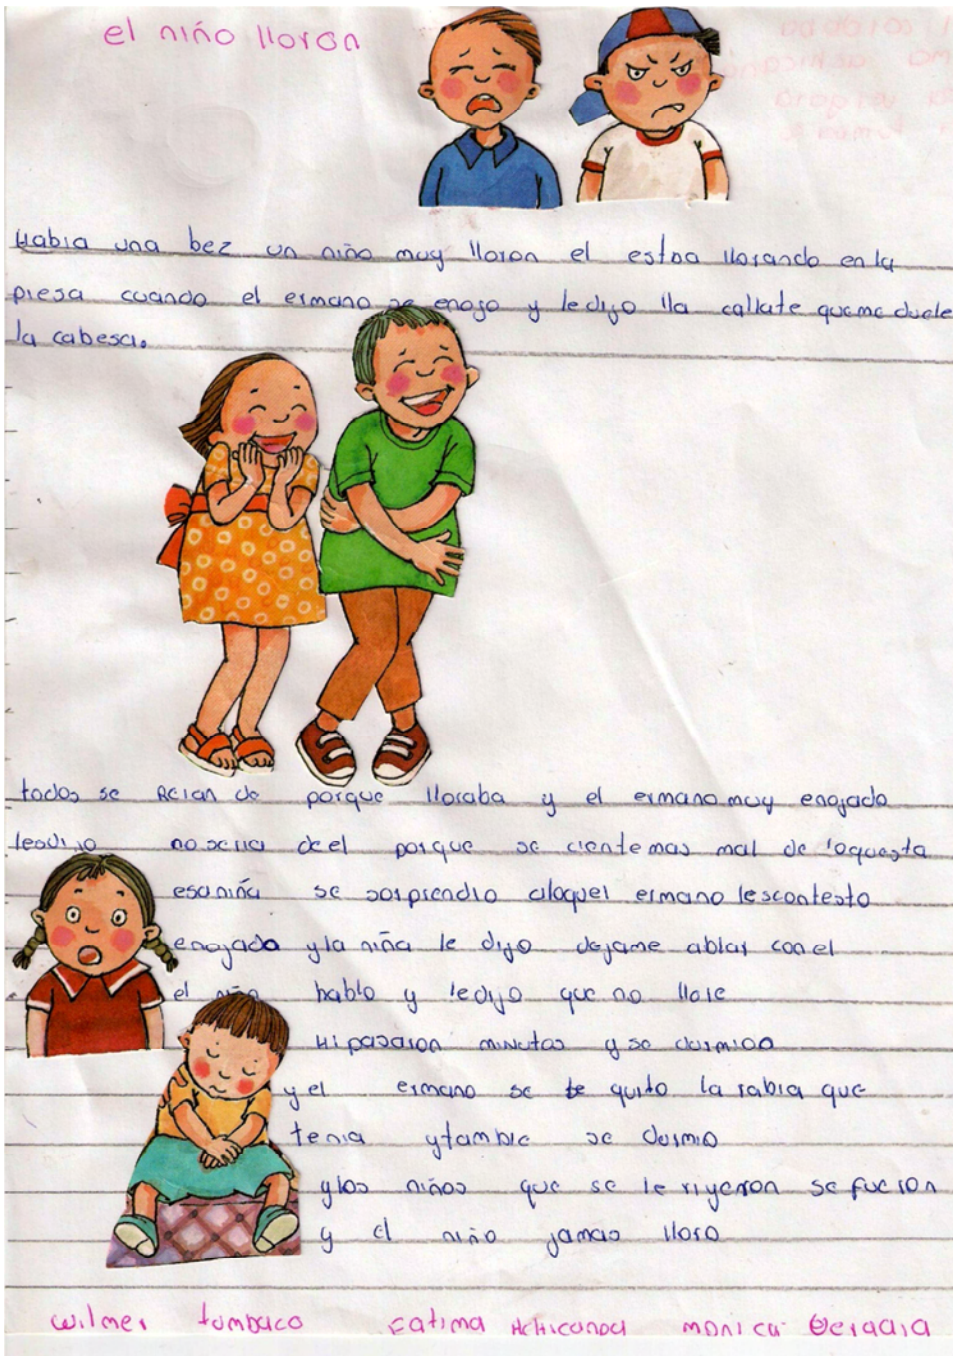 el niño lloron
Habia una bez un niño muy lloron el estoa llorando en la
piesa cuando el ermano se enojo y ledijo lla callate queme duele
la cabesa.
todos se Reian de porque lloraba y el ermano muy enojado
lesdijo no seria de el porque se ciente mas mal de loquesta
esa niña se sorprendio aloquel ermano lescontesto
enojado y la niña le dijo dejame ablar con el
el niño hablo y ledijo que no llore
Hi pasaron minutos y se durmioo
y el ermano se te quito la rabia que
tenia y tambie se durmio
y los niños que se le riyeron se fueron
y el niño jamas lloro
wilmer tumbaco Fatima monica